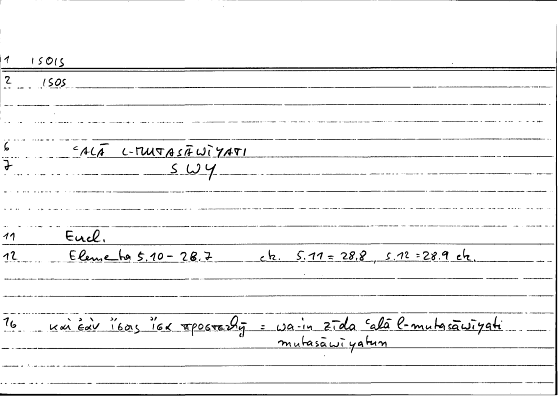 1 ISOIS
2 ISOS
6 ʿALĀ L-MUTASĀWIYATI
7 SWY
11 Eucl.
12 Elementa 5.10 - 28.7 etc. 5.11 = 28.8, 5.12 = 28.9 etc.
16 καὶ ἐὰν ἴσοις ἴσα προστεθῇ = wa-in zīda ʿalā l-mutasāwiyati
mutasāwiyatun